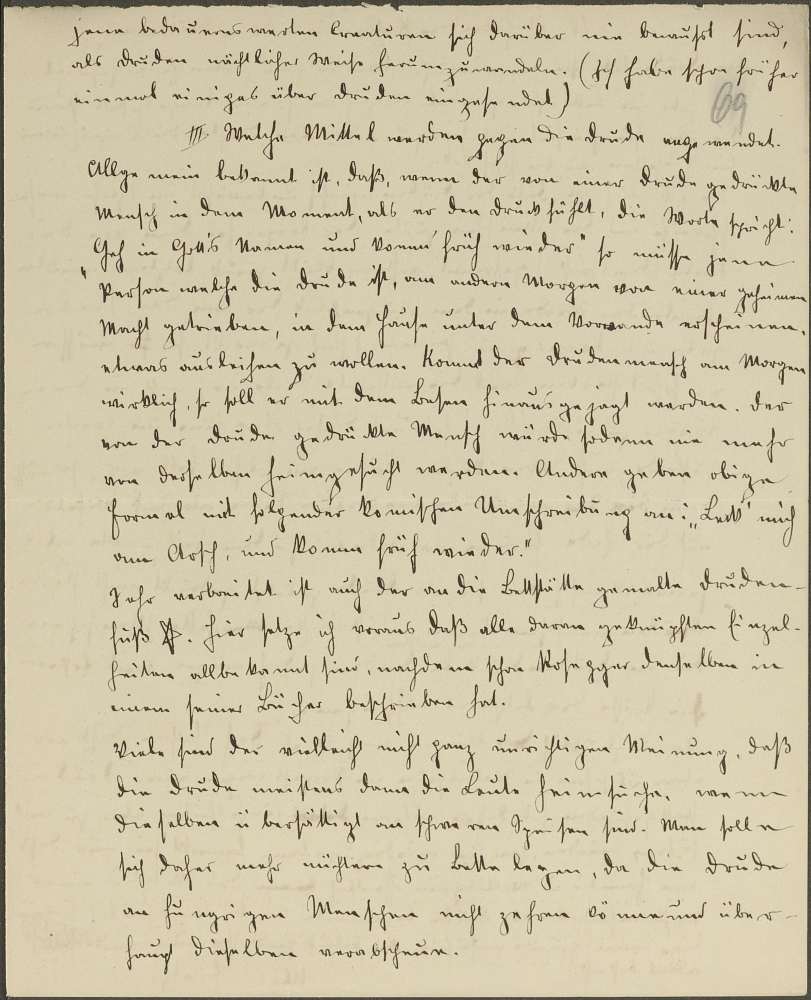 jene bedauernswerten Creaturen sich darüber nie bewußt sind,
als Druden nächtlicher Weise herumzuwandeln. (Ich habe schon früher
einmal einiges über Druden eingesendet.)
69
III. Welche Mittel werden gegen die Drude angewendet.
Allgemein bekannt ist, daß, wenn der von einer Drude gedrückte
Mensch in dem Moment, als er den Druck fühlt, die Worte spricht:
"Geh in Gott's Namen und komm' früh wieder" so müsse jene
Person welche die Drude ist, am andern Morgen von einer geheimen
Macht getrieben, in dem Hause unter dem Vorwande erscheinen,
etwas ausleihen zu wollen. Kommt der Drudenmensch am Morgen
wirklich, so soll er mit dem Besen hinausgejagt werden. Der
von der Drude gedrückte Mensch würde sodann nie mehr
von derselben heimgesucht werden. Andere geben obige
Formel mit folgender komischen Umschreibung an: „Leck' mich
am Arsch, und komm früh wieder."
Sehr verbreitet ist auch der an die Bettstätte gemalte Druden-
fuß ⛤. Hier setze ich voraus daß alle daran geknüpften Einzel-
heiten allbekannt sind, nachdem schon Rosegger denselben in
einem seiner Bücher beschrieben hat.
Viele sind der vielleicht nicht ganz unrichtigen Meinung, daß
die Drude meistens dann die Leute heimsuche, wenn
dieselben übersättigt an schweren Speisen sind. Man solle
sich daher mehr nüchtern zu Bette legen, da die Drude
an hungrigen Menschen nicht zehren könne und über-
haupt dieselben verabscheue.